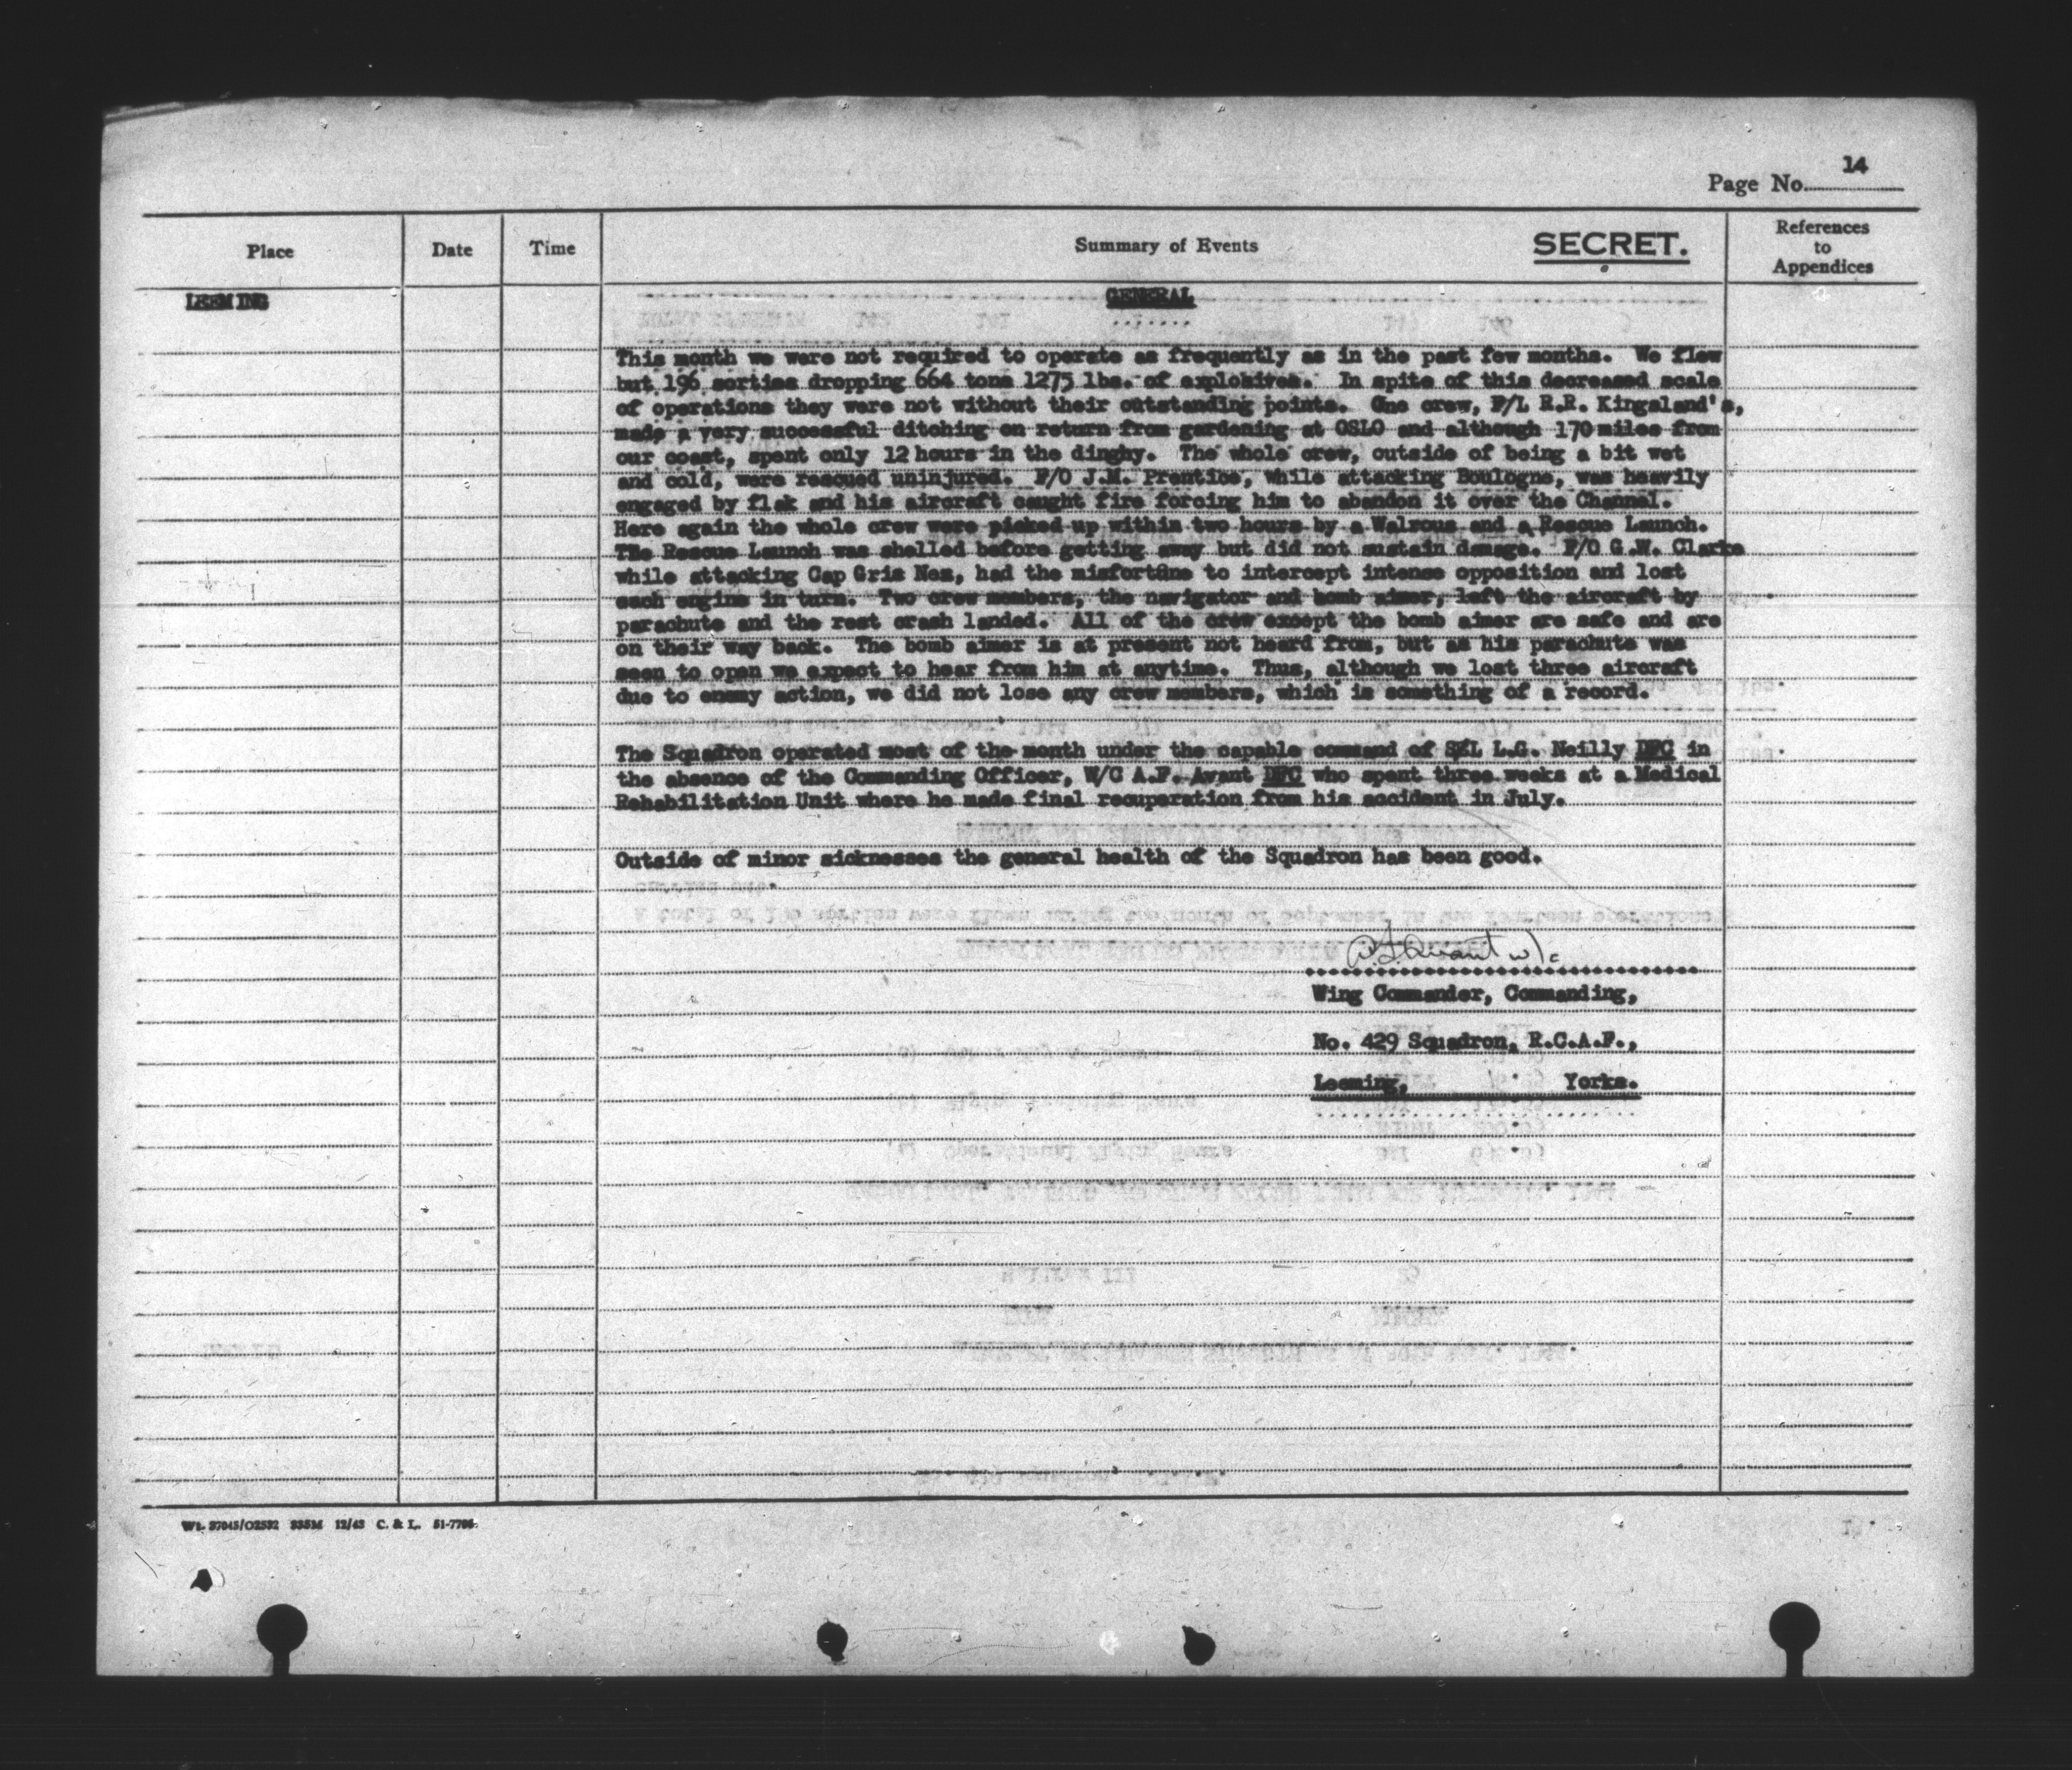 14
Page No.
Place
Date
Time
Summary of Events
SECRET.
References
to
Appendices
LEEMING
GENERAL
This month we were not required to operate as frequently as in the past few months. We flew
but 196 sorties dropping 664 tons 1275 lbs. of explosives. In spite of this decreased scale
of operations they were not without their outstanding points. One crew, F/L R.R. Kingsland's,
made a very successful ditching on return from gardening at OSLO and although 170 miles from
our coast, spent only 12 hours in the dinghy. The whole crew, outside of being a bit wet
and cold, were rescued uninjured. F/O J.M. Prentice, while attacking Boulogne, was heavily
engaged by flak and his aircraft caught fire forcing him to abandon it over the Channel.
Here again the whole crew were picked up within two hours by a Walrous and a Rescue Launch.
THe Rescue Launch was shelled before getting away but did not sustain damage. F/O G.W. Clarke
while attacking Cap Gris Nez, had the misfortune to intercept intense opposition and lost
each engine in turn. Two crew members, the navigator and bomb aimer, left the aircraft by
parachute and the rest crash landed. All of the crew except the bomb aimer are safe and are
on their way back. The bomb aimer is at present not heard from, but as his parachute was
seen to open we expect to hear from him at anytime. Thus, although we lost three aircraft
due to enemy action, we did not lose any crew members, which is something of a record.
The Squadron operated most of the month under the capable command of S/L L.G. Neilly DFC in
the absence of the Commanding Officer, W/C A.F. Avant DFC who spent three weeks at a Medical
Rehabilitation Unit where he made final recuperation from his accident in July.
Outside of minor sicknesses the general health of the Squadron has been good.
A.F. Avant w/c
Wing Commander, Commanding,
No. 429 Squadron, R.C.A.F.,
Leeming, Yorks.
Wt. 37045/O2532 335M 12/43 C. & L. 51-7706.